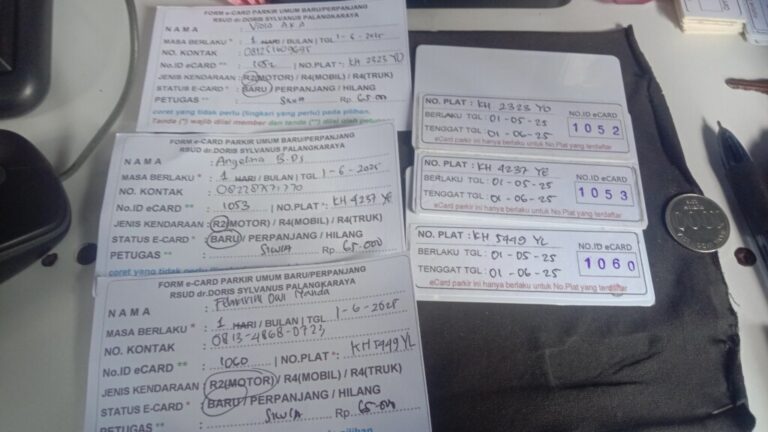 FORM e-CARD PARKIR UMUM BARU/PERPANJANG
RSUD dr.DORIS SYLVANUS PALANGKARAYA
NAMA : Viola A.K.A
MASA BERLAKU * : 1 HARI / BULAN | TGL 1-6-2025
NO. KONTAK
No.ID eCARD ** : 1052 | NO.PLAT* : KH 2323 YO
JENIS KENDARAAN : R2(MOTOR) / R4(MOBIL) / R4(TRUK)
STATUS E-CARD * : BARU / PERPANJANG / HILANG
PETUGAS ** : SILVIA Rp. 65.000
coret yang tidak perlu (lingkari yang perlu) pada pilihan,
Tanda (*) wajib diisi member dan tanda (**) diisi oleh
FORM e-CARD PARKIR UMUM BARU/PERPANJANG
RSUD dr.DORIS SYLVANUS PALANGKARAYA
NAMA : Angelina
MASA BERLAKU * : 1 HARI / BULAN | TGL 1-6-2025
NO. KONTAK
No.ID eCARD ** : 1053 | NO.PLAT* : KH 4237 YE
JENIS KENDARAAN : R2(MOTOR) / R4(MOBIL) / R4(TRUK)
STATUS E-CARD * : BARU / PERPANJANG / HILANG
PETUGAS ** : SILVIA Rp 65.000
coret yang tidak perlu (lingkari
FORM e-CARD PARKIR UMUM BARU/PERPANJANG
RSUD dr.DORIS SYLVANUS PALANGKARAYA
NAMA : Dwi
MASA BERLAKU * : 1 HARI / BULAN | TGL 1-6-2025
NO. KONTAK : 0813-4868-0723
No.ID eCARD ** : 1060 | NO.PLAT* : KH 5949 YL
JENIS KENDARAAN : R2(MOTOR) / R4(MOBIL) / R4(TRUK)
STATUS E-CARD * : BARU / PERPANJANG / HILANG
PETUGAS ** : SILVIA Rp. 65.000
NO. PLAT : KH 2323 YO
BERLAKU TGL : 01-05-25
TENGGAT TGL : 01-06-25
NO.ID eCARD
1052
eCard parkir ini hanya berlaku untuk No.Plat yang terdaftar
NO. PLAT : KH 4237 YE
BERLAKU TGL : 01-05-25
TENGGAT TGL : 01-06-25
NO.ID eCARD
1053
eCard parkir ini hanya berlaku untuk No.Plat yang terdaftar
NO. PLAT : KH 5949 YL
BERLAKU TGL : 01-05-25
TENGGAT TGL : 01-06-25
NO.ID eCARD
1060
eCard parkir ini hanya berlaku untuk No.Plat yang terdaftar